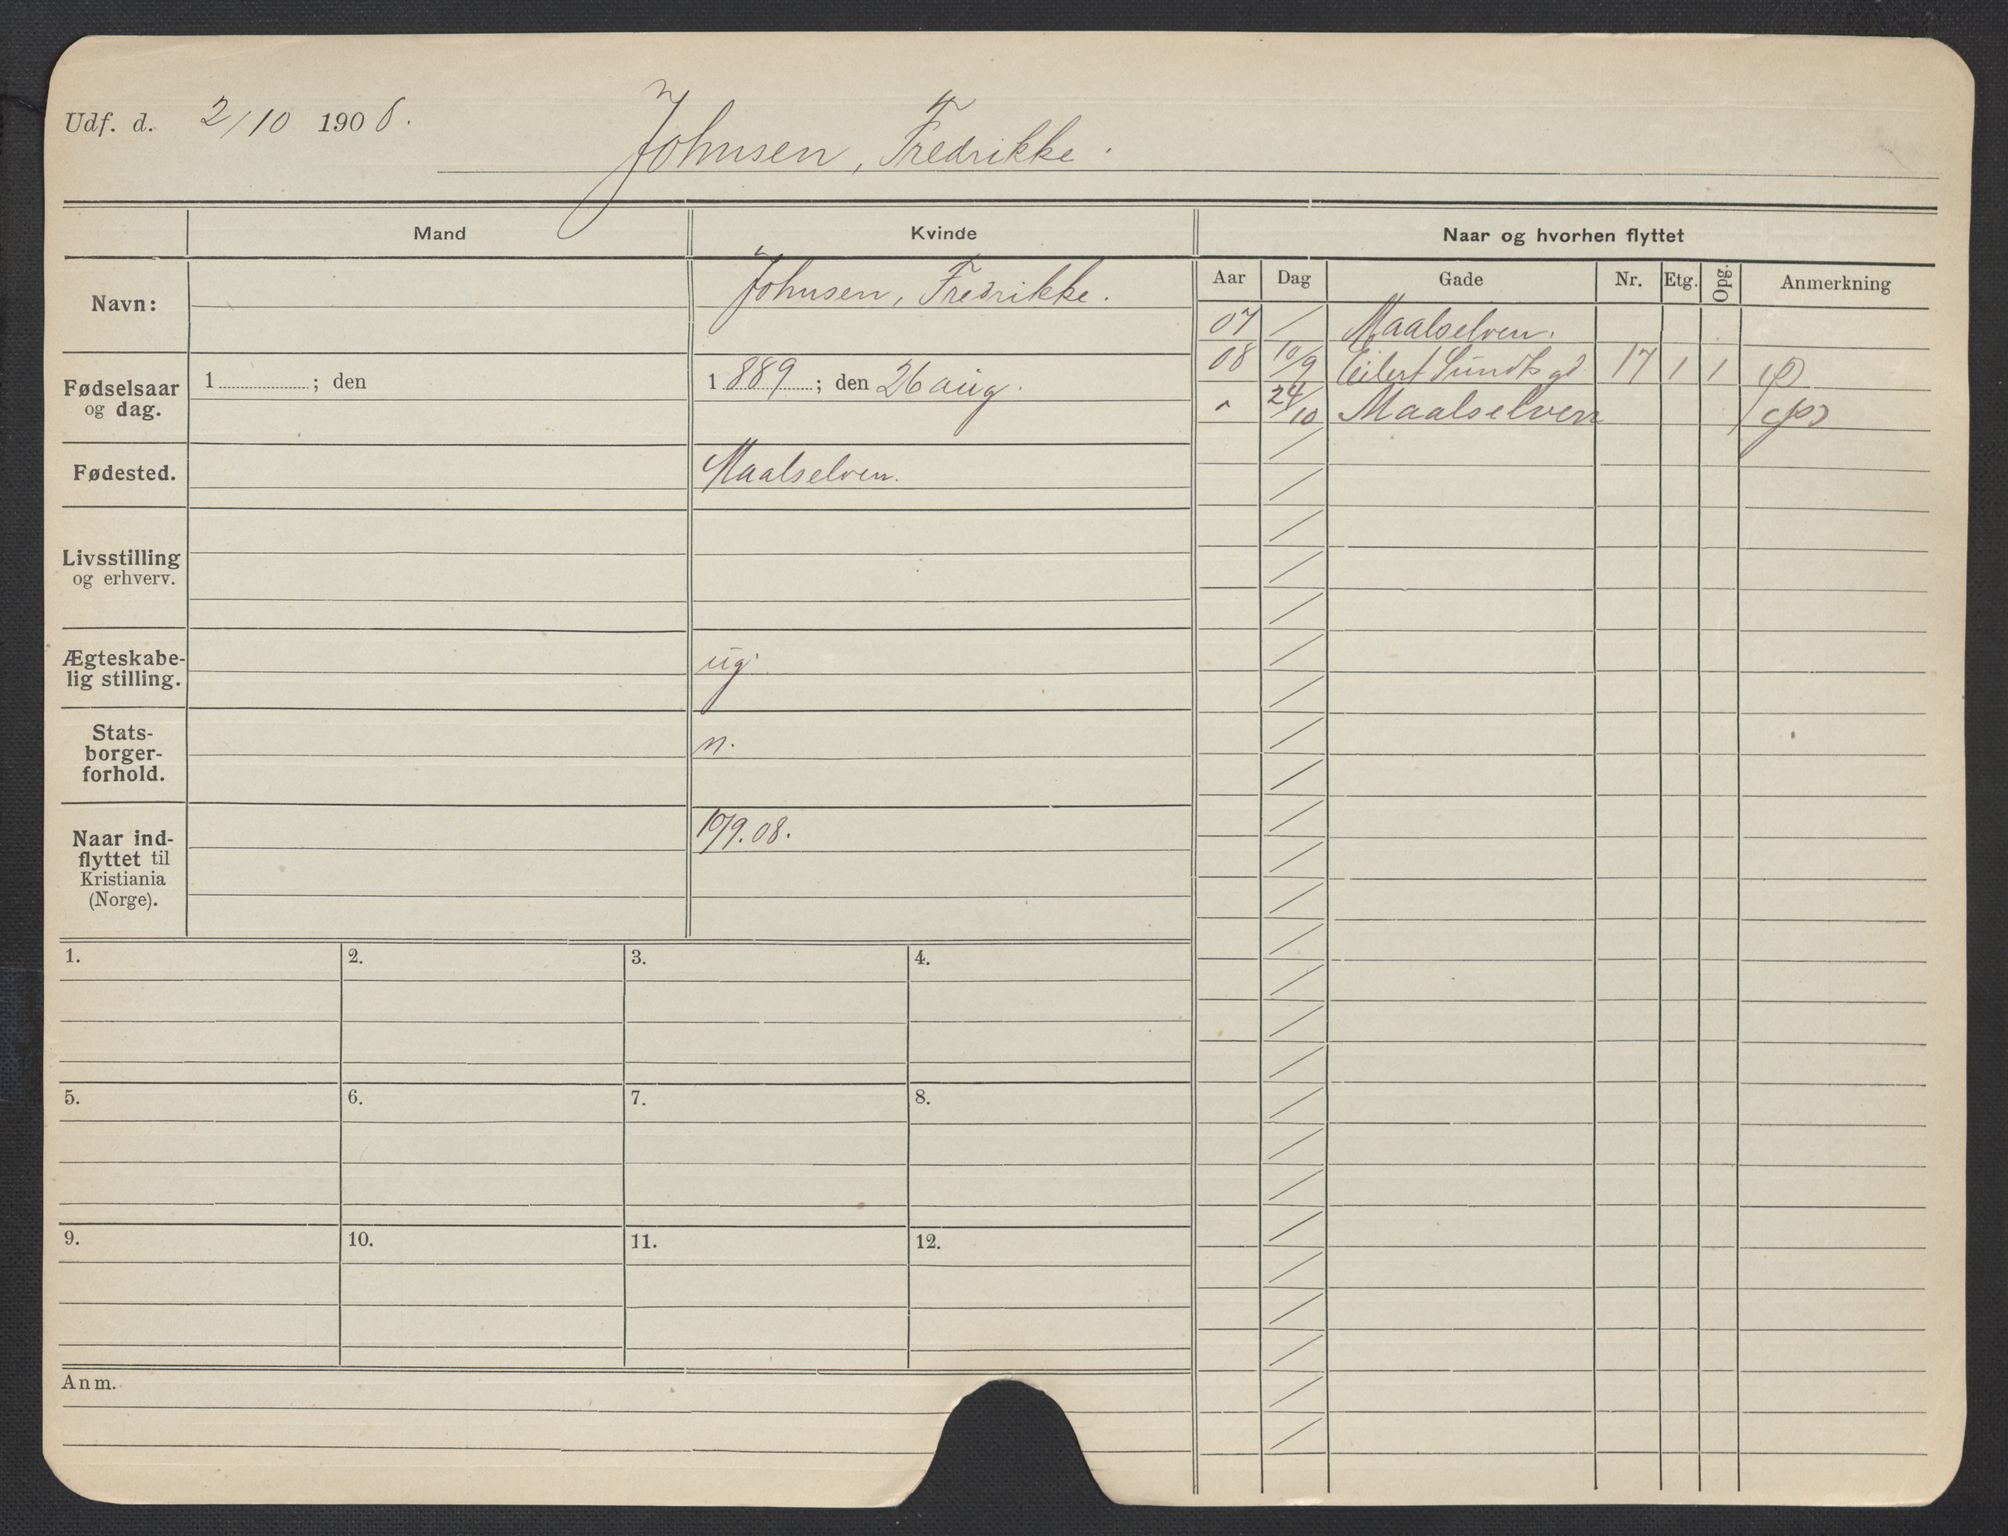 Udf. d. 2/10 1908.
Johnsen, Fredrikke.
Mand
Kvinde
Naar og hvorhen flyttet
Navn:
Johnsen, Fredrikke.
Fødselsaar
og dag.
1 ; den
1 889 ; den 26 aug.
Fødested.
Maalselven.
Livsstilling
og erhverv.
Ægteskabe-
lig stilling.
ug.
Stats-
borger-
forhold.
n.
Naar ind-
flyttet til
Kristiania
(Norge).
10/9.08.
Aar Dag Gade Nr. Etg. Opg. Anmerkning
07 / Maalselven.
08 10/9 Eilert Sundts gd. 17 1 1
" 24/10 Maalselven
1. 2. 3. 4.
5. 6. 7. 8.
9. 10. 11. 12.
Anm.